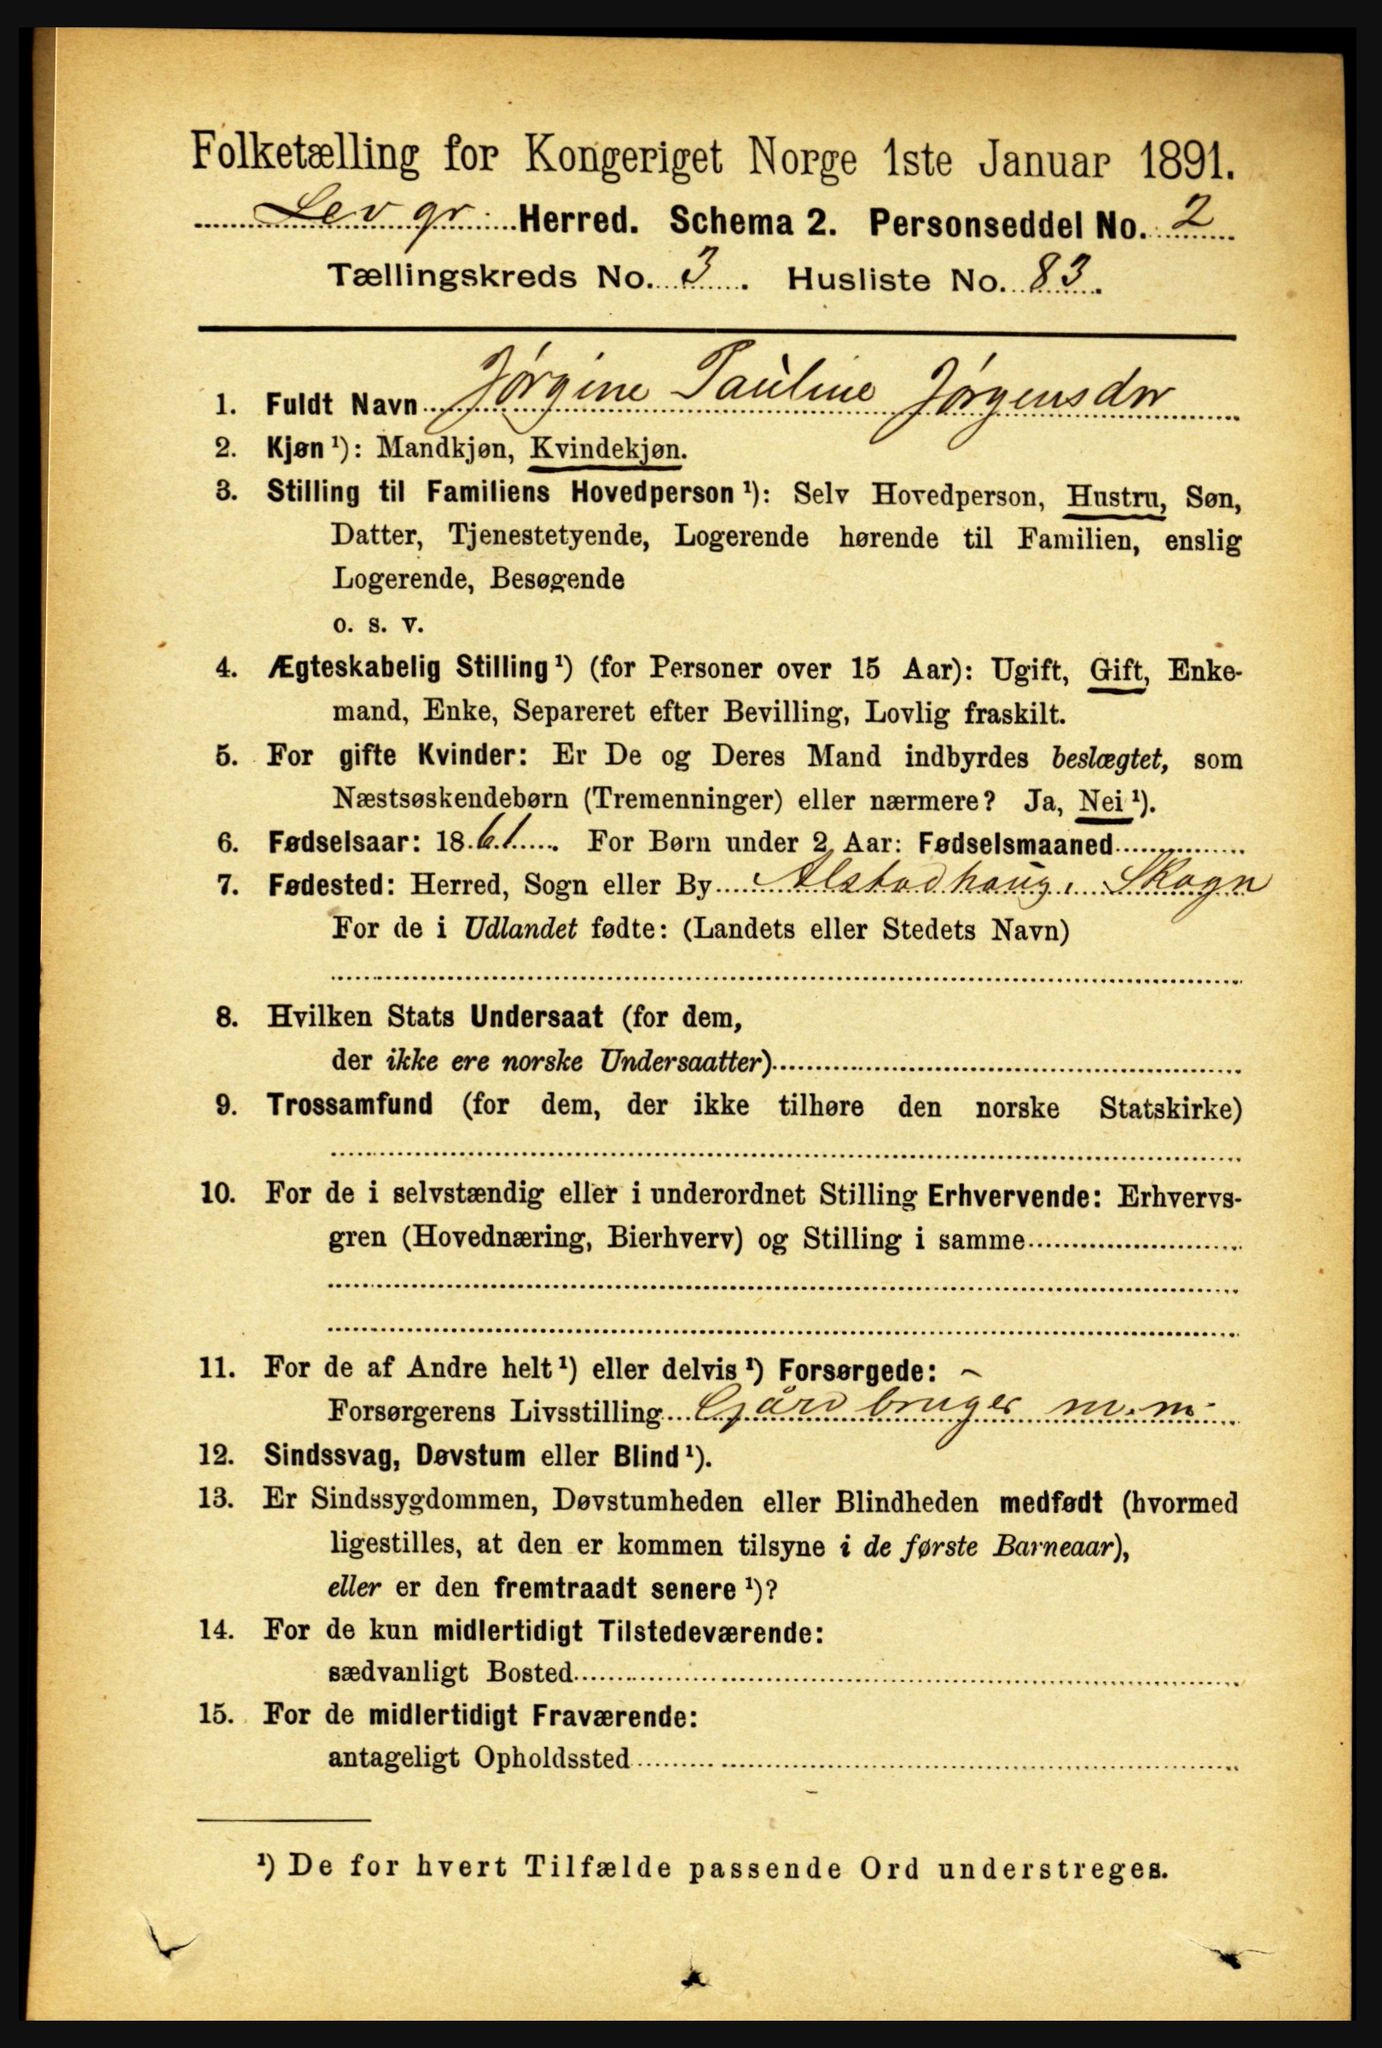 Folketælling for Kongeriget Norge 1ste Januar 1891.
Lev gr. Herred. Schema 2. Personseddel No. 2
Tællingskreds No. 3. Husliste No. 83.
1. Fuldt Navn Jørgine Pauline Jørgensdtr
2. Kjøn¹): Mandkjøn, Kvindekjøn.
3. Stilling til Familiens Hovedperson¹): Selv Hovedperson, Hustru, Søn,
Datter, Tjenestetyende, Logerende hørende til Familien, enslig
Logerende, Besøgende
o. s. v.
4. Ægteskabelig Stilling¹) (for Personer over 15 Aar): Ugift, Gift, Enke-
mand, Enke, Separeret efter Bevilling, Lovlig fraskilt.
5. For gifte Kvinder: Er De og Deres Mand indbyrdes beslægtet, som
Næstsøskendebørn (Tremenninger) eller nærmere? Ja, Nei¹).
6. Fødselsaar: 1861. For Børn under 2 Aar: Fødselsmaaned
7. Fødested: Herred, Sogn eller By Alstadhaug, Skogn
For de i Udlandet fødte: (Landets eller Stedets Navn)
8. Hvilken Stats Undersaat (for dem,
der ikke ere norske Undersaatter)
9. Trossamfund (for dem, der ikke tilhøre den norske Statskirke)
10. For de i selvstændig eller i underordnet Stilling Erhvervende: Erhvervs-
gren (Hovednæring, Bierhverv) og Stilling i samme
11. For de af Andre helt¹) eller delvis¹) Forsørgede: ~
Forsørgerens Livsstilling Gårdbruger m. m.
12. Sindssvag, Døvstum eller Blind¹).
13. Er Sindssygdommen, Døvstumheden eller Blindheden medfødt (hvormed
ligestilles, at den er kommen tilsyne i de første Barneaar),
eller er den fremtraadt senere¹)?
14. For de kun midlertidigt Tilstedeværende:
sædvanligt Bosted
15. For de midlertidigt Fraværende:
antageligt Opholdssted
¹) De for hvert Tilfælde passende Ord understreges.